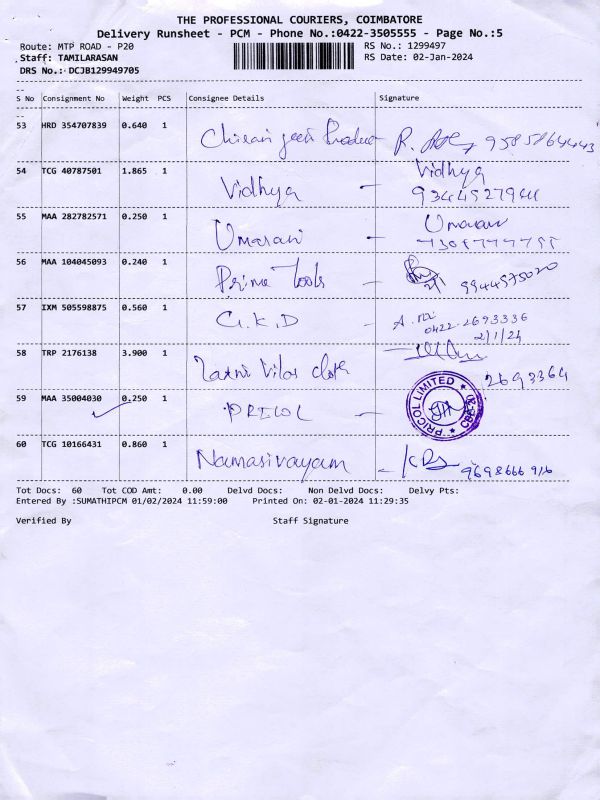 THE PROFESSIONAL COURIERS, COIMBATORE
Delivery Runsheet - PCM - Phone No.:0422-3505555 - Page No.:5
Route: MTP ROAD - P20 RS No.: 1299497
Staff: TAMILARASAN RS Date: 02-Jan-2024
DRS No.: DCJB129949705
S No Consignment No Weight PCS Consignee Details Signature
53 HRD 354707839 0.640 1
54 TCG 40787501 1.865 1 Vidhya - Vidhya
55 MAA 282782571 0.250 1 Umarani -
56 MAA 104045093 0.240 1 Prime Tools - 9944975020
57 IXM 505598875 0.560 1 G.K.D -
0422-2693336
2/1/24
58 TRP 2176138 3.900 1 2693364
59 MAA 35004030 0.250 1 PRICOL - PRICOL LIMITED
60 TCG 10166431 0.860 1 Namasivayam - 9698666916
Tot Docs: 60 Tot COD Amt: 0.00 Delvd Docs: Non Delvd Docs: Delvy Pts:
Entered By :SUMATHIPCM 01/02/2024 11:59:00 Printed On: 02-01-2024 11:29:35
Verified By Staff Signature